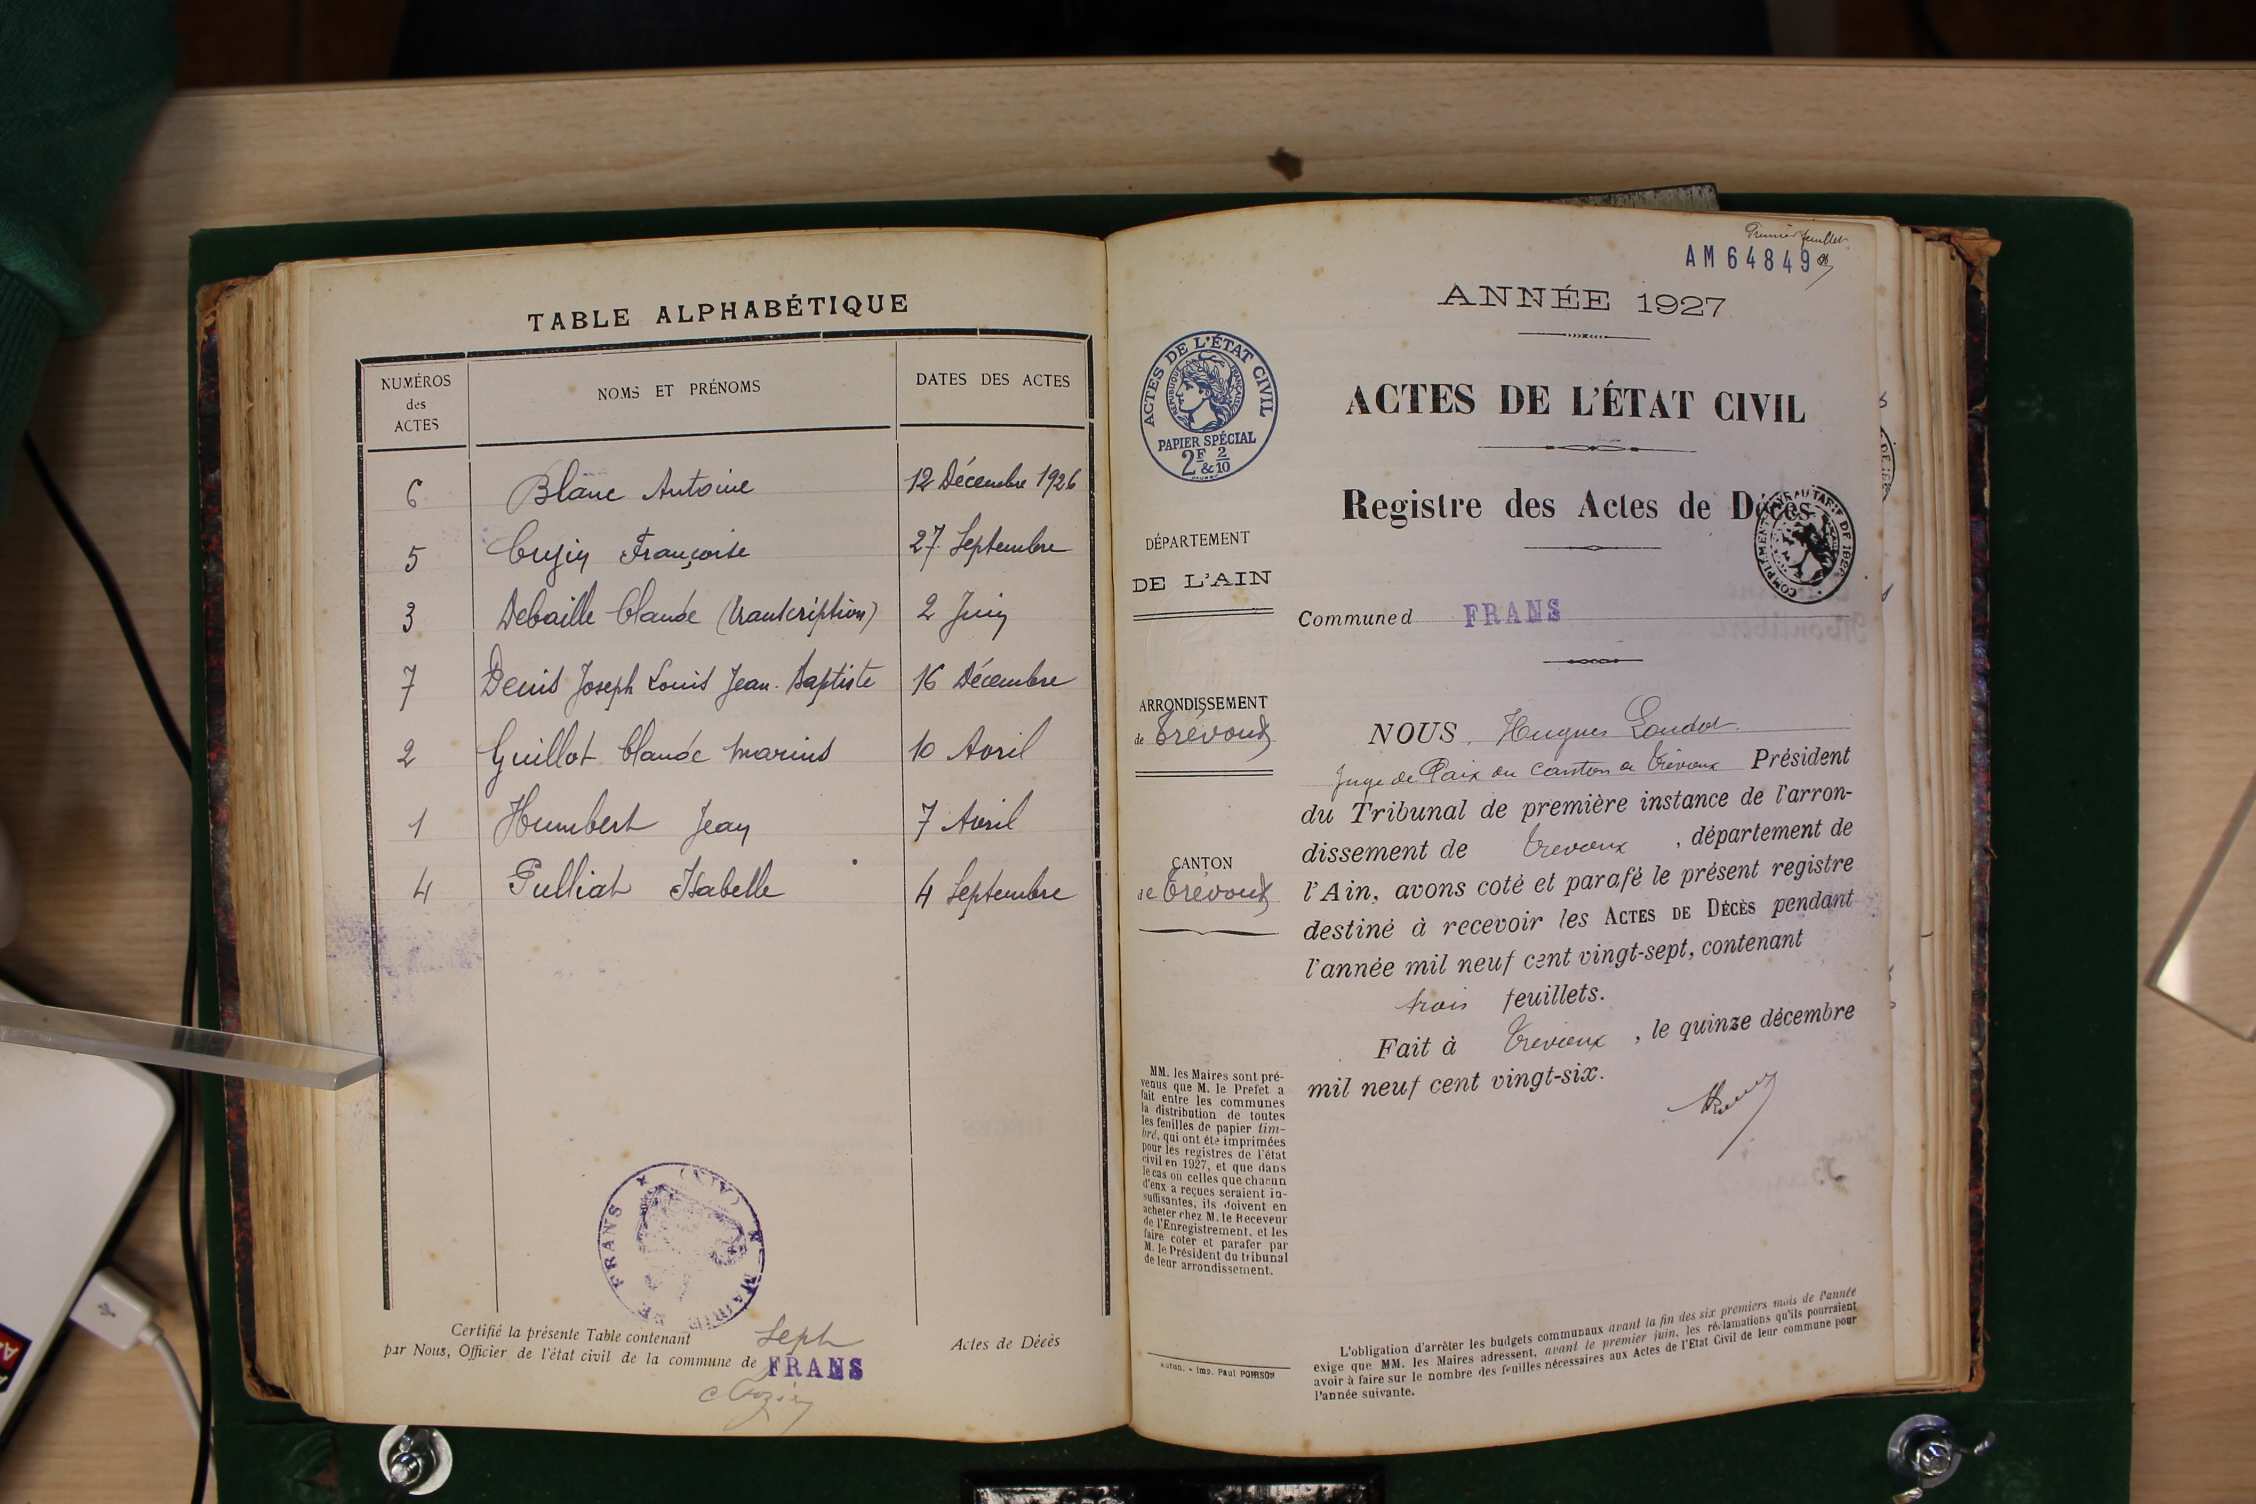 TABLE ALPHABÉTIQUE
NUMÉROS des ACTES NOMS ET PRÉNOMS DATES DES ACTES
6 Blanc Antoine 12 Décembre 1926
5 Cuzin Françoise 27 Septembre
3 Debaille Claude (transcription) 2 Juin
7 Denis Joseph Louis Jean-Baptiste 16 Décembre
2 Guillot Claude Marius 10 Avril
1 Humbert Jean 7 Avril
4 Pulliat Isabelle 4 Septembre
MAIRIE DE FRANS (AIN)
Certifié la présente Table contenant Sept Actes de Décès
par Nous, Officier de l'état civil de la commune de FRANS
Premier feuillet
AM 64849
ANNÉE 1927
ACTES DE L'ÉTAT CIVIL
RÉPUBLIQUE FRANÇAISE
PAPIER SPÉCIAL
2F & 2/10
ACTES DE L'ÉTAT CIVIL
Registre des Actes de Décès
DÉPARTEMENT
DE L'AIN
Commune d FRANS
ARRONDISSEMENT
de Trévoux
CANTON
de Trévoux
NOUS, Hugues
Juge de Paix du canton de Trévoux Président
du Tribunal de première instance de l'arron-
dissement de Trévoux, département de
l'Ain, avons coté et parafé le présent registre
destiné à recevoir les ACTES DE DÉCÈS pendant
l'année mil neuf cent vingt-sept, contenant
trois feuillets.
Fait à Trévoux, le quinze décembre
mil neuf cent vingt-six.
MM. les Maires sont pré-
venus que M. le Prefet a
fait entre les communes
la distribution de toutes
les feuilles de papier tim-
bré, qui ont été imprimées
pour les registres de l'état
civil en 1927, et que dans
le cas où celles que chacun
d'eux a reçues seraient in-
suffisantes, ils doivent en
acheter chez M. le Receveur
de l'Enregistrement, et les
faire coter et parafer par
M. le Président du tribunal
de leur arrondissement.
Imp. Paul POIRSON
L'obligation d'arrêter les budgets communaux avant la fin des six premiers mois de l'année
exige que MM. les Maires adressent, avant le premier juin, les réclamations qu'ils pourraient
avoir à faire sur le nombre des feuilles nécessaires aux Actes de l'Etat Civil de leur commune pour
l'année suivante.